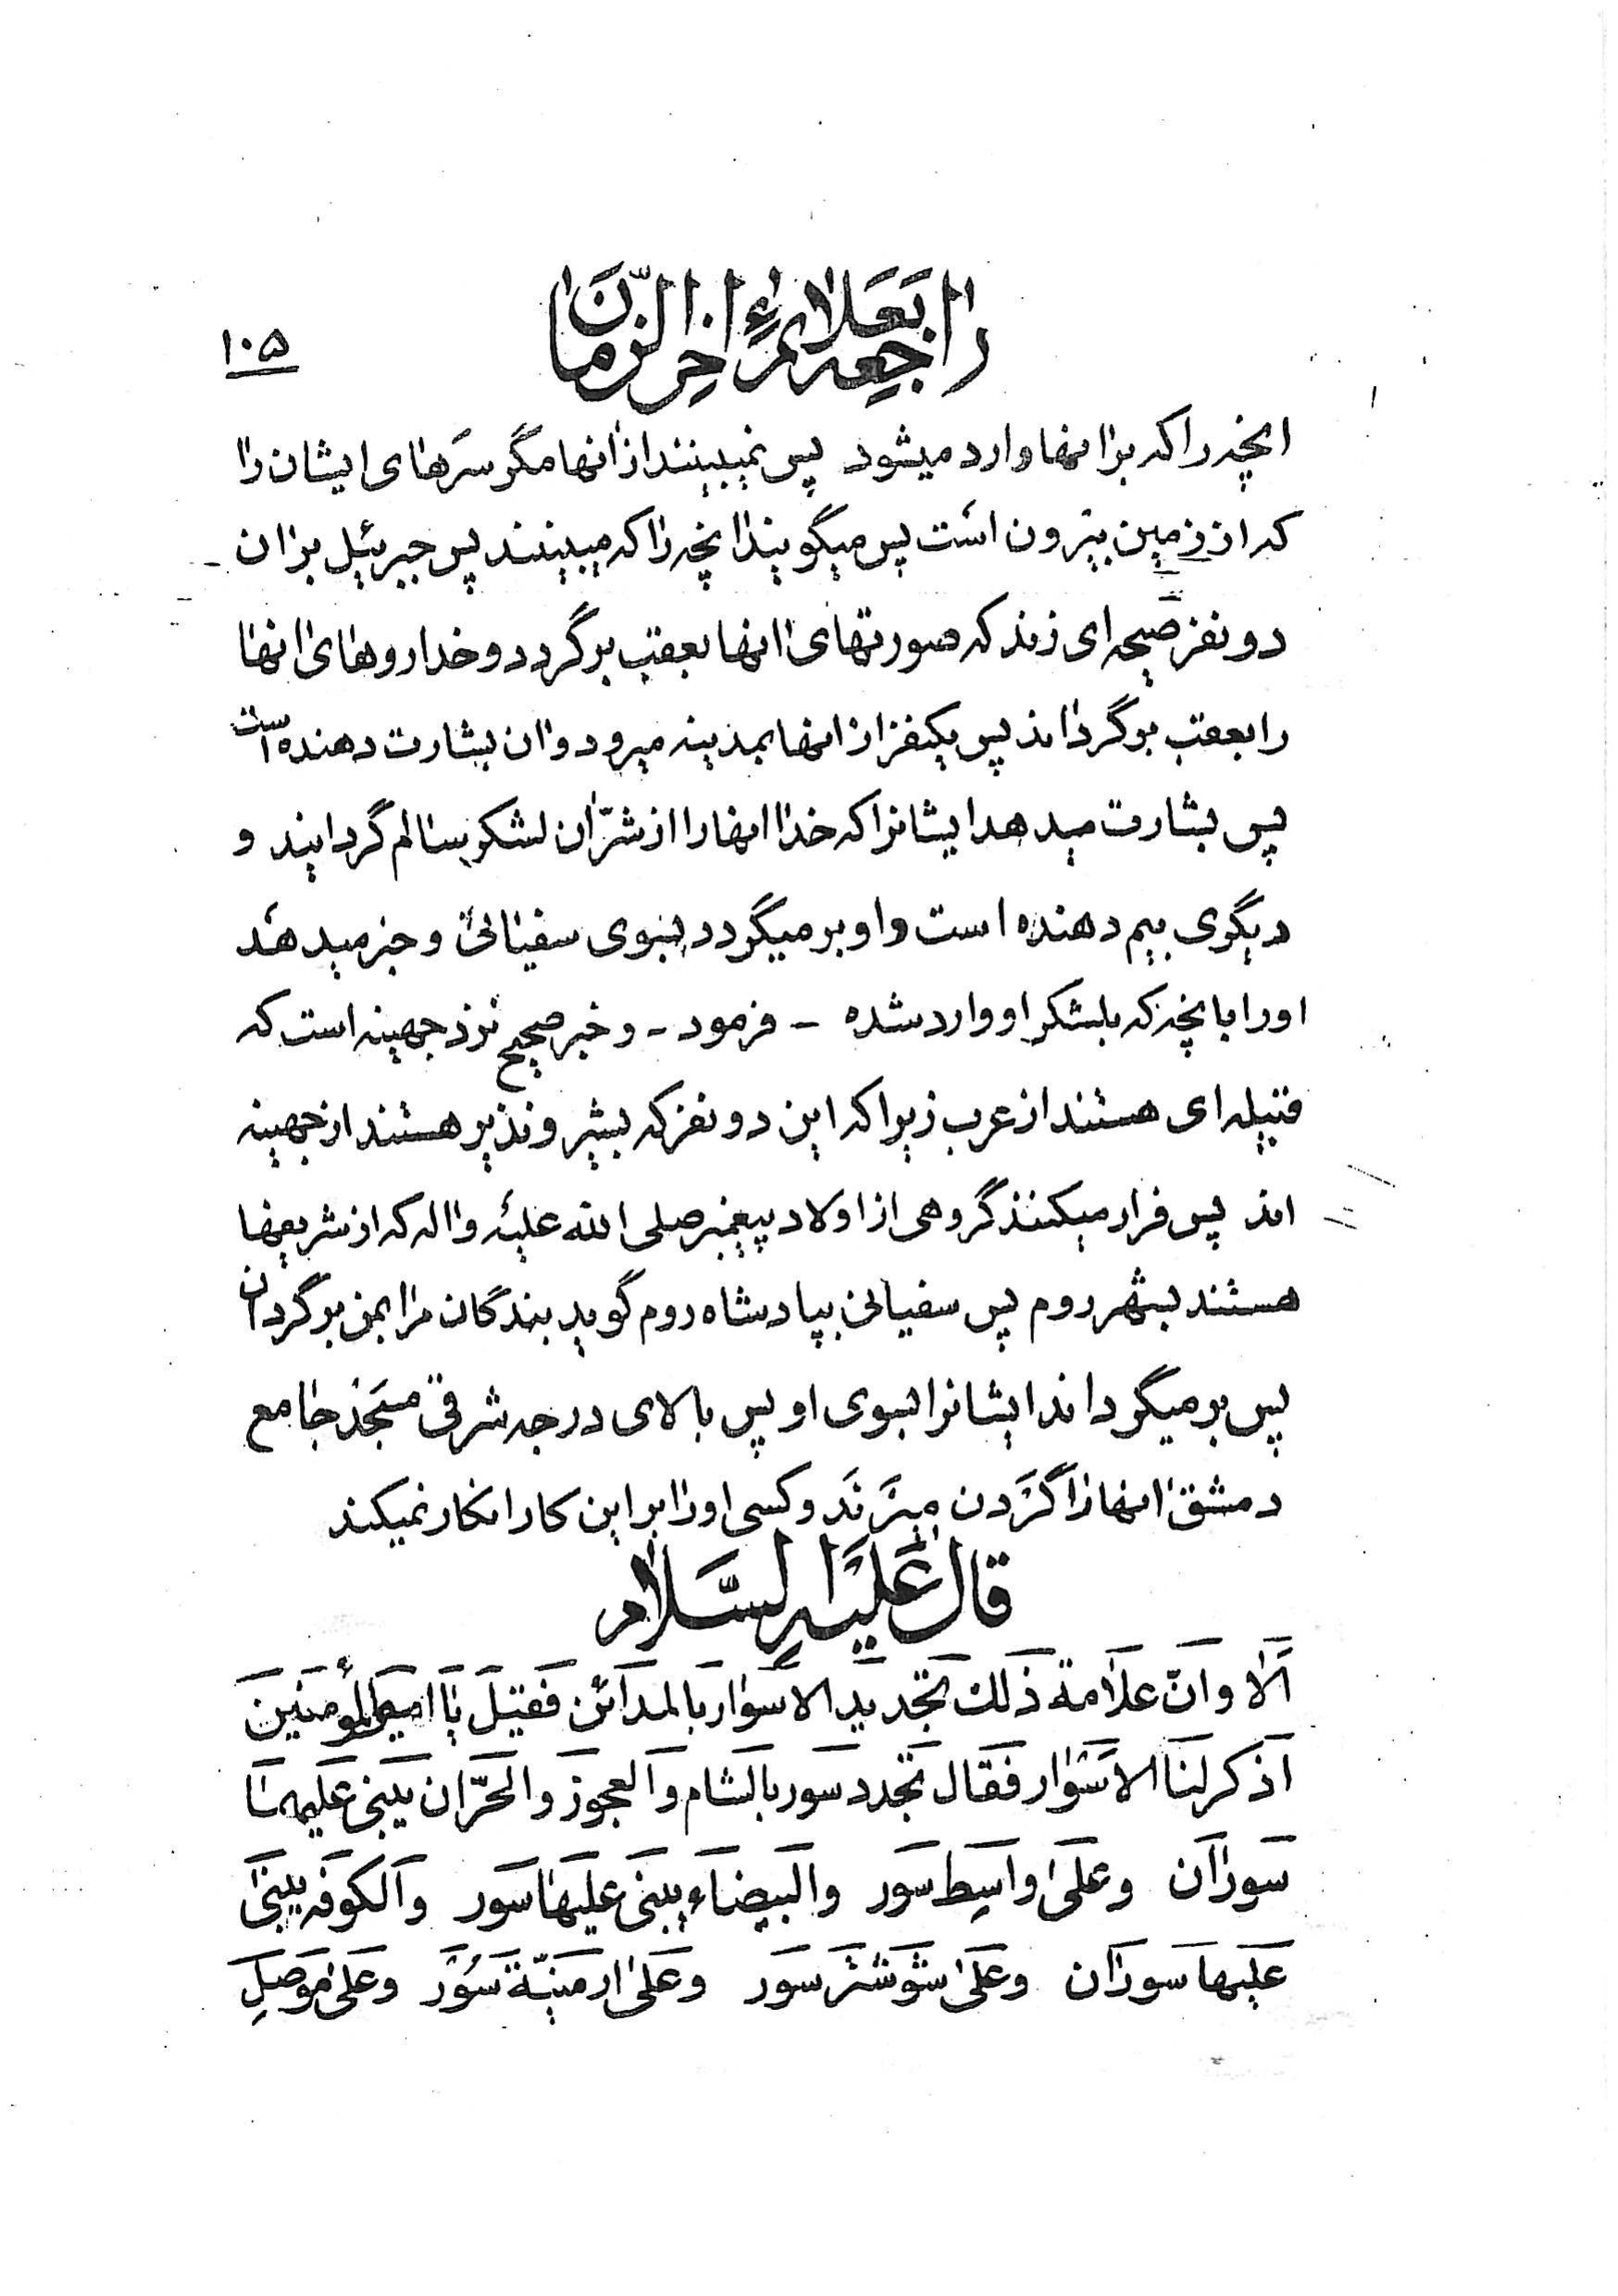 راجعه بعلائم اخر الزّمان
۱۰۵
انچه را که بر انها وارد میشود پس نمیبینند از انها مگر سرهای ایشان را
که از زمین بیرون است پس میگویند انچه را که میبینند پس جبرئیل بر ان
دو نفر صیحه ای زند که صورتهای انها بعقب برگردد و خدا روهای انها
را بعقب برگرداند پس یکنفر از انها بمدینه میرود و ان بشارت دهنده است
پس بشارت میدهد ایشانرا که خدا انها را از شرّ ان لشکر سالم گردانید و
دیگری بیم دهنده است و او برمیگردد بسوی سفیانی و خبر میدهد
او را بانچه که بلشکر او وارد شده - فرمود - و خبر صحیح نزد جهینه است که
قبیله ای هستند از عرب زیرا که این دو نفر که بشیر و نذیر هستند از جهینه
اند پس فرار میکنند گروهی از اولاد پیغمبر صلی الله علیه و اله که از شریفها
هستند بشهر روم پس سفیانی بپادشاه روم گوید بندگان مرا بمن برگردان
پس برمیگرداند ایشانرا بسوی او پس بالای درجه شرقی مسجد جامع
دمشق انها را گردن میزند و کسی او را بر این کار انکار نمیکند
قال علیه السّلام
الا و انّ علامة ذلك تجدید الاسوار بالمدائن فقیل یا امیر المؤمنین
اذکر لنا الاسوار فقال تجدد سور بالشام و العجوز و الحرّان یبنی علیهما
سوران و علی واسط سور و البیضاء یبنی علیها سور و الکوفه یبنی
علیها سوران و علی شوشتر سور و علی ارمنیّة سور و علی موصل